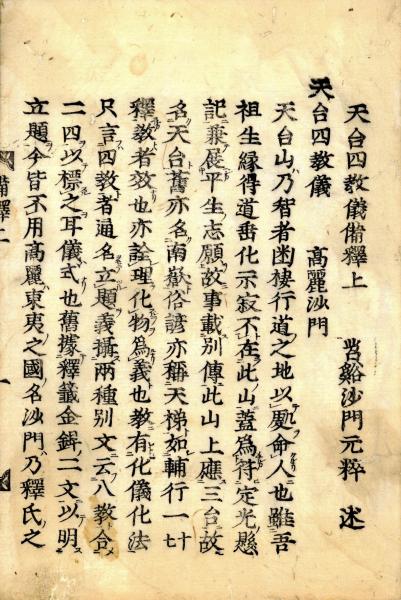 天台四教儀備釋上　苕谿沙門元粹　述
天台四教儀　高麗沙門
天台山乃智者凾棲行道之地以處命人也雖吾
祖生緣得道垂化示寂不在此山蓋為符定光懸
記乘展平生志願故事載別傳此山上應三台故
名天台舊亦名南嶽俗諺亦稱天梯如輔行一十
釋教者效也亦詮理化物為義也教有化儀化法
只言四教者通名立題義攝兩種別文云八教合
二四以標之耳儀式也舊據釋籤金錍二文以明
立題今皆不用高麗東夷之國名沙門乃釋氏之
備釋上
一